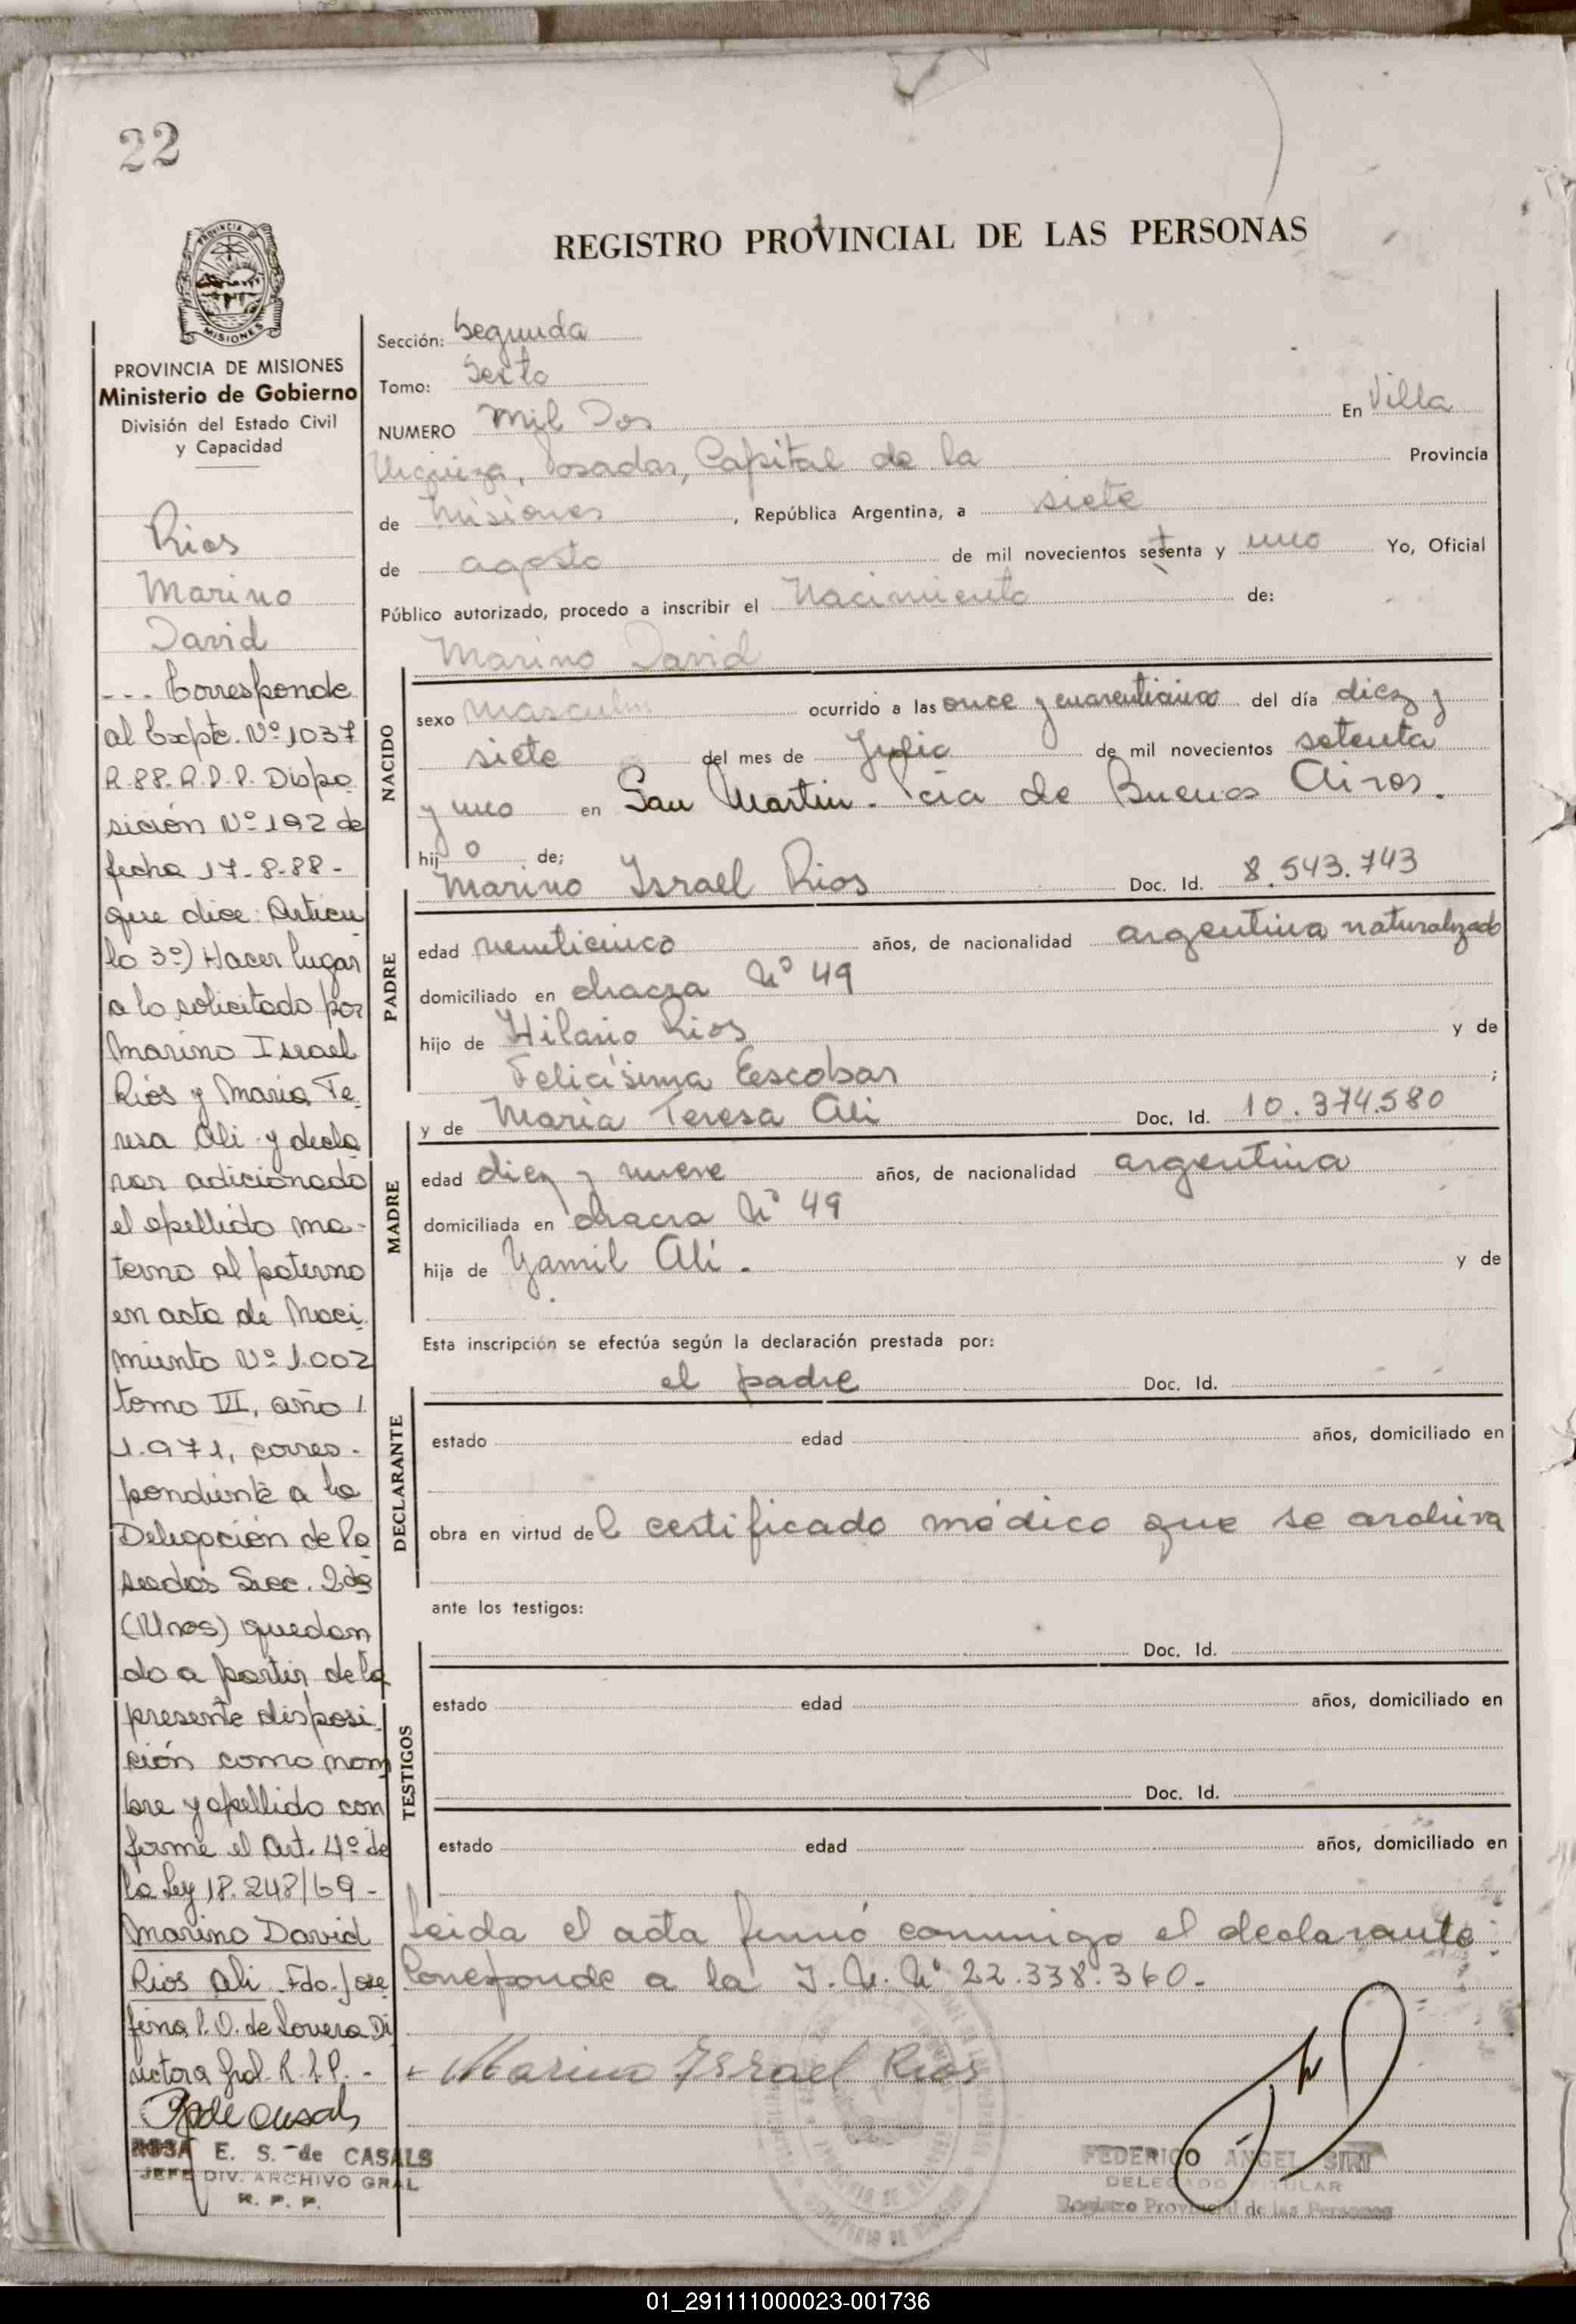 22
PROVINCIA DE
MISIONES
REGISTRO PROVINCIAL DE LAS PERSONAS
PROVINCIA DE MISIONES
Ministerio de Gobierno
División del Estado Civil
y Capacidad
Rios
Marino
David
--- Corresponde
al Expte. Nº 1037
R.88-R.P.P. Dispo
sición Nº 192 de
fecha 17-8-88-
que dice: Articu
lo 3º) Hacer lugar
a lo solicitado por
Marino Israel
Rios y Maria Te
resa Ali y decla
rar adicionado
el apellido ma-
terno al paterno
en acta de Naci
miento Nº 1.002
tomo VI, año
1.971, corres-
pondiente a la
Delegación de Po
sadas Secc. 2da
(Mnes) quedan
do a partir de la
presente disposi
ción como nom
bre y apellido con
forme el Art. 4º de
la Ley 18.248/69-
Marino David
Rios Ali. Fdo. Jose
fina P. O. de Lovera Di
rectora Gral. R.P.P.-
ROSA E. S. de CASALS
JEFE DIV. ARCHIVO GRAL
R. P. P.
Sección: Segunda
Tomo: Sexto
NUMERO Mil Dos En Villa
Urquiza, Posadas, Capital de la Provincia
de Misiones, República Argentina, a siete
de agosto de mil novecientos setenta y uno Yo, Oficial
Público autorizado, procedo a inscribir el Nacimiento de:
Marino David
NACIDO
sexo masculin ocurrido a las once y cuarenticinco del día diez y
siete del mes de Julio de mil novecientos setenta
y uno en San Martin - Pcia de Buenos Aires.
hijo de;
Marino Israel Rios Doc. Id. 8.543.743
PADRE
edad veinticinco años, de nacionalidad argentina naturalizado
domiciliado en chacra Nº 49
hijo de Hilario Rios y de
Felicísima Escobar ;
y de Maria Teresa Ali Doc. Id. 10.374.580
MADRE
edad diez y nueve años, de nacionalidad argentina
domiciliada en chacra Nº 49
hija de Yamil Alí. y de
Esta inscripción se efectúa según la declaración prestada por:
el padre Doc. Id.
DECLARANTE
estado edad años, domiciliado en
obra en virtud del certificado médico que se archiva
ante los testigos:
Doc. Id.
TESTIGOS
estado edad años, domiciliado en
Doc. Id.
estado edad años, domiciliado en
Leida el acta firmó conmigo el declarante
Corresponde a la I. N. Nº 22.338.360.-
Marino Israel Rios
FEDERICO ANGEL SIRI
DELEGADO TITULAR
Registro Provincial de las Personas
01_291111000023-001736